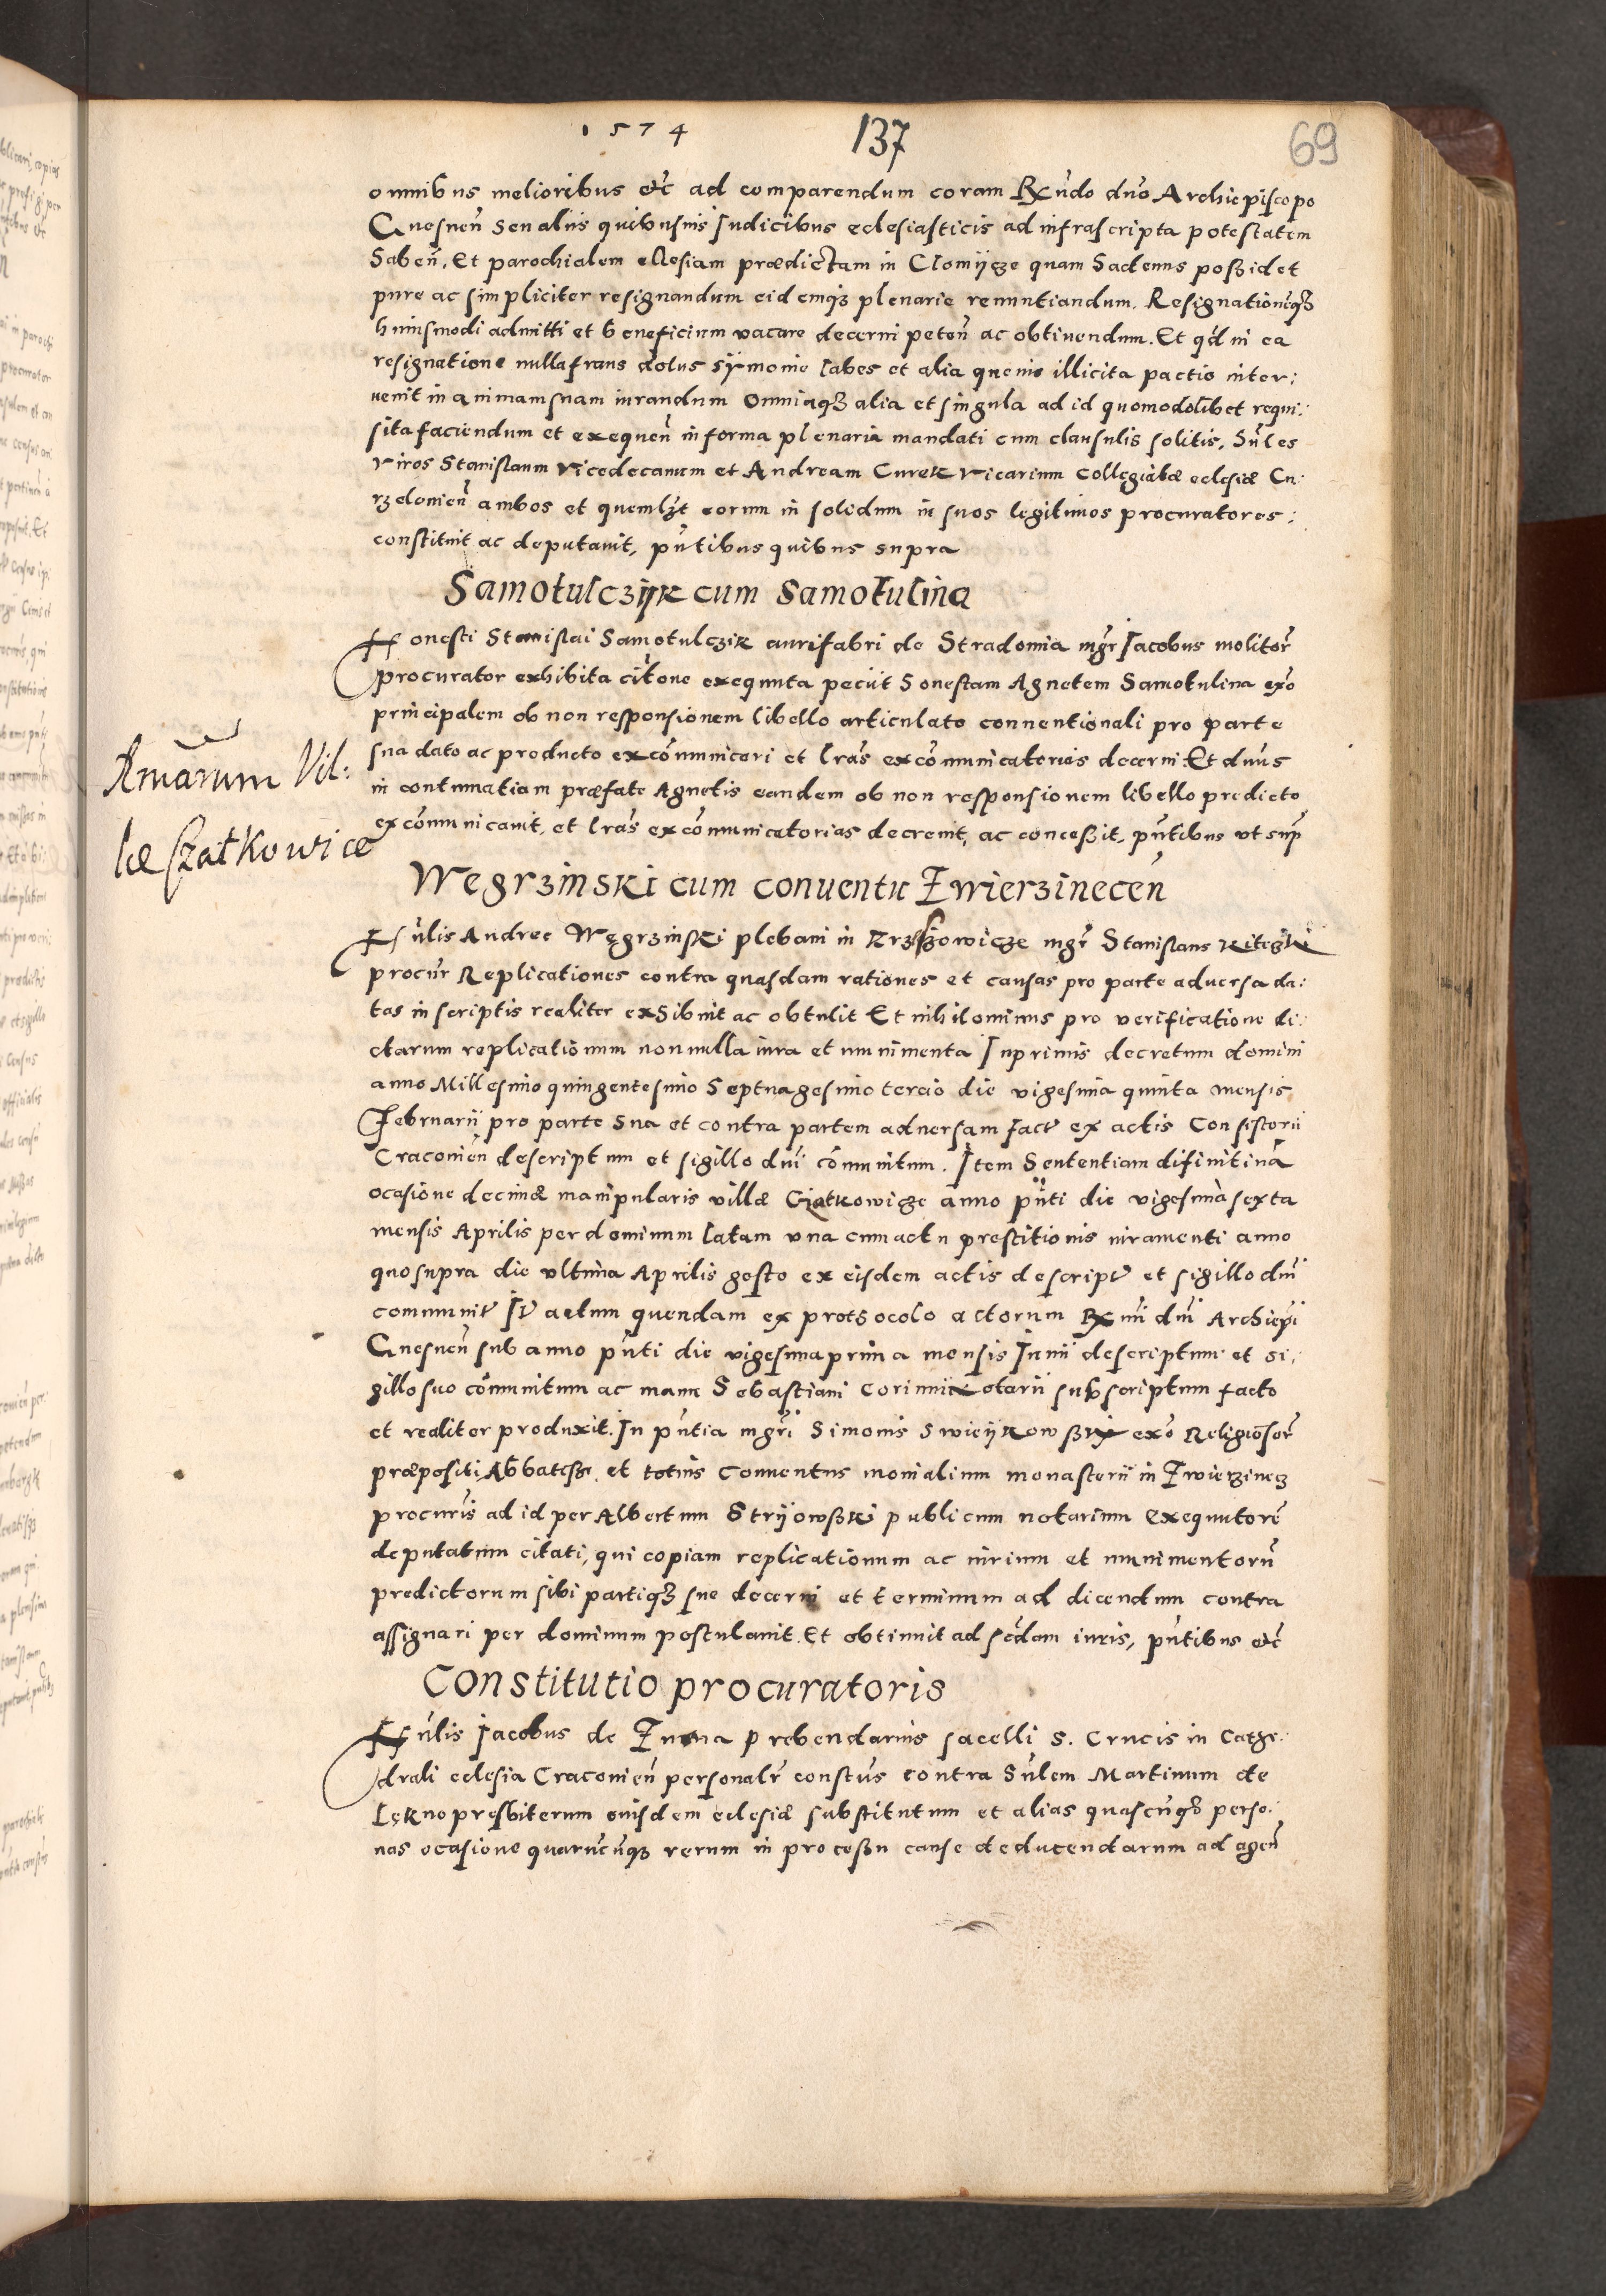 1574
137
69
omnibus melioribus etc̃ ad comparendum coram Rx̃ndo dño Archiepiscopo
Gnesneñ seu aliis quibusuis Judicibus eclesiasticis ad infrascripta potestatem
habeñ, Et parochialem ecclesiam prædictam in Clomijcze quam hactenus possidet
pure ac simpliciter resignandum eidemq3 plenarie renuntiandum. Resignationẽq3
huiusmodi admitti et beneficium vacare decerni peteñ ac obtinendum. Et qđ in ea
resignatione nulla fraus dolus sÿmonie labes et alia queuis illicita pactio inter:
uenit in animam suam iurandum omniaq3 alia et singula ad id quomodolibet requi:
sita faciendum et exequeñ in forma plenaria mandati cum clausulis solitis, Hũles
viros Stanislaum vicedecanum et Andream Curek vicarium collegiatæ eclesiæ Cu:
rzelonieñ ambos et quemlȝt eorum in solidum in suos legitimos procuratores:
constituit ac deputauit, pñtibus quibus supra
Samotulczijk cum Samotulina
Honesti Stanislai Samotulczik aurifabri de Stradomia mgr̃ Jacobus molitor̃
procurator exhibita citõne exequuta peciit honestam Agnetem Samotulina exõ
principalem ob non responsionem libello articulato conuentionali pro parte
sua dato ac producto excõmunicari et lrãs excõmunicatorias decerni Et dnũs
in contumatiam præfate Agnetis eandem ob non responsionem libello predicto
excõmunicauit, et lrãs excõmunicatorias decreuit, ac concessit, pñtibus vt sup̃
Armarum Vil:
læ szatkowice
Wegrzinski cum conuentu Zwierzineceñ
Hũlis Andree Węgrzinski plebani in Krzeszowicze mgr̃ Stanislaus
procũr Replicationes contra quasdam rationes et causas pro parte aduersa da:
tas in scriptis realiter exhibuit ac obtulit Et nihilominus pro verificatione di:
ctarum replicationum nonnulla iura et munimenta Inprimis decretum domini
anno Millesimo quingentesimo Septuagesimo tercio die vigesima quinta mensis
Februarii pro parte sua et contra partem aduersam fact̃ ex actis Consistorii
Cracouieñ descriptum et sigillo dnĩ cõmunitum. Item Sententiam difinitiuã
ocasione decimæ manipularis villæ Cziatkowicze anno pñti die vigesima sexta
mensis Aprilis per dominum latam vna cum actu prestitionis iuramenti anno
quo supra die vltima Aprilis gesto ex eisdem actis descript̃ et sigillo dnĩ
communit̃ It̃ actum quendam ex prothocolo actorum Rx̃mi dnĩ Archiepĩ
Gnesneñ sub anno pñti die vigesima prima mensis Iunii descriptum et si:
gillo suo cõmunitum ac manu Sebastiani subscriptum facto
et realiter produxit. In pñtia mgr̃i Simonis exõ Religiosor̃
præpositi, Abbatissæ, et totius Conuentus monialium monasterii in Zwierzinecz
procurĩs ad id per Albertum Strijowski publicum notarium exequutorẽ
deputatum citati, qui copiam replicationum ac iurium et munimentorũ
predictorum sibi partiq3 sue decerni et terminum ad dicendum contra
assignari per dominum postulauit. Et obtinuit ad scđam iuris, pñtibus etc̃
Constitutio procuratoris
Hũlis Jacobus de prebendarius sacelli S. Crucis in Cathe:
drali eclesia Cracouieñ personalr̃ constũs contra hũlem Martinum de
Lękno presbiterum euisdem eclesiæ substitutum et alias quascũq3 perso:
nas ocasione quarũcũq3 rerum in processu cause deducendarum ad ageñ